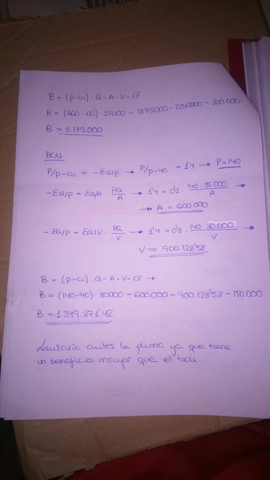 B = (p-cu) · Q - A - V - CF
B = (260 - 60) · 25000 - 1.975.000 - 2250000 - 200.000
B = 5.175.000
BOLI
P/p-cu = -EQ/p → P/p-40 = 1'4 → P=140
-EQ/p = EQ/A · PQ/A → 1'4 = 0'2 · 140·35000/A →
→ A = 600000
-EQ/p = EQ/V · PQ/V → 1'4 = 0'3 · 140·30000/V →
V = 900.128'58
B = (p-cu) · Q - A - V - CF →
B = (140-40) · 80000 - 600.000 - 900.128'58 - 150.000
B = 1.349.871'42
Lanzaría antes la pluma ya que tiene
un beneficio mayor que el boli.